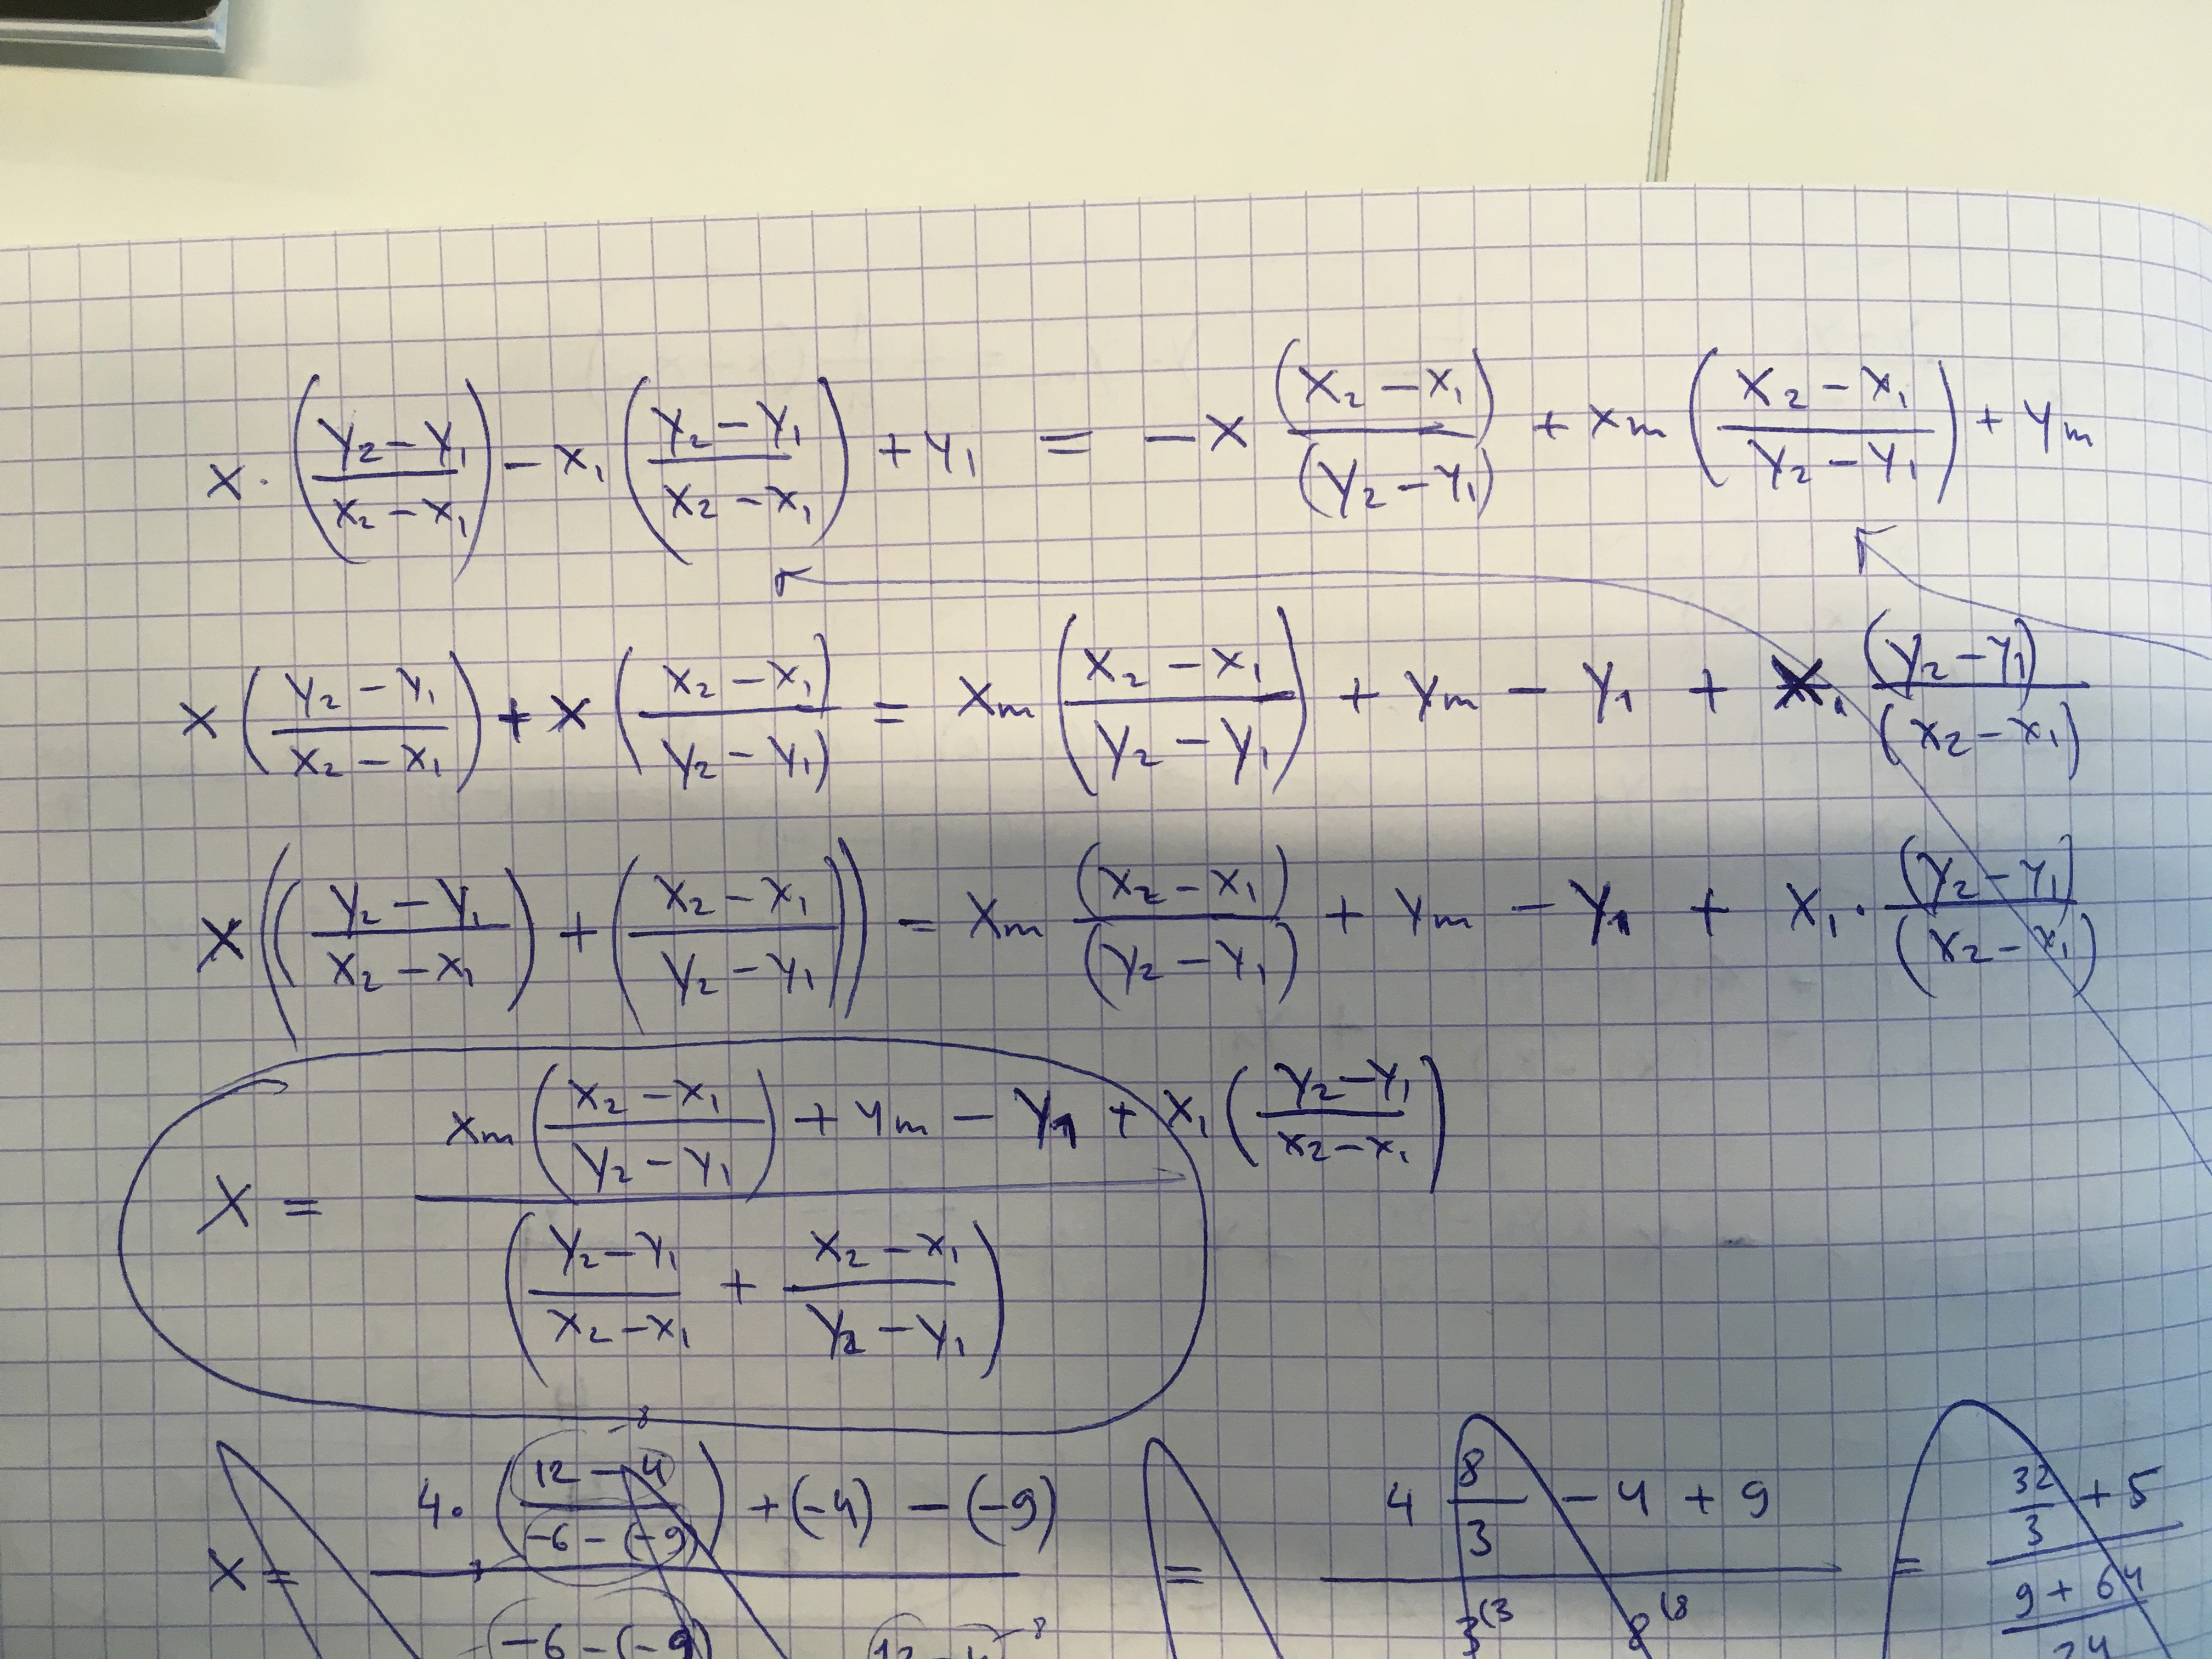 x · ((y₂ − y₁)/(x₂ − x₁)) − x₁ ((y₂ − y₁)/(x₂ − x₁)) + y₁ = −x (x₂ − x₁)/(y₂ − y₁) + xm ((x₂ − x₁)/(y₂ − y₁)) + ym
x ((y₂ − y₁)/(x₂ − x₁)) + x ((x₂ − x₁)/(y₂ − y₁)) = xm ((x₂ − x₁)/(y₂ − y₁)) + ym − y₁ + x₁ (y₂ − y₁)/(x₂ − x₁)
x (((y₂ − y₁)/(x₂ − x₁)) + ((x₂ − x₁)/(y₂ − y₁))) = xm (x₂ − x₁)/(y₂ − y₁) + ym − y₁ + x₁ · (y₂ − y₁)/(x₂ − x₁)
xm ((x₂ − x₁)/(y₂ − y₁)) + ym − y₁ + x₁ ((y₂ − y₁)/(x₂ − x₁))
x =
((y₂ − y₁)/(x₂ − x₁) + (x₂ − x₁)/(y₂ − y₁))
−8
4 · ((12 − 4)/(−6 − (−9))) + (−4) − (−9) 4 8/3 − 4 + 9 32/3 + 5
x = = =
−6 − (−9) −8 3(3 8(8 9 + 64
24